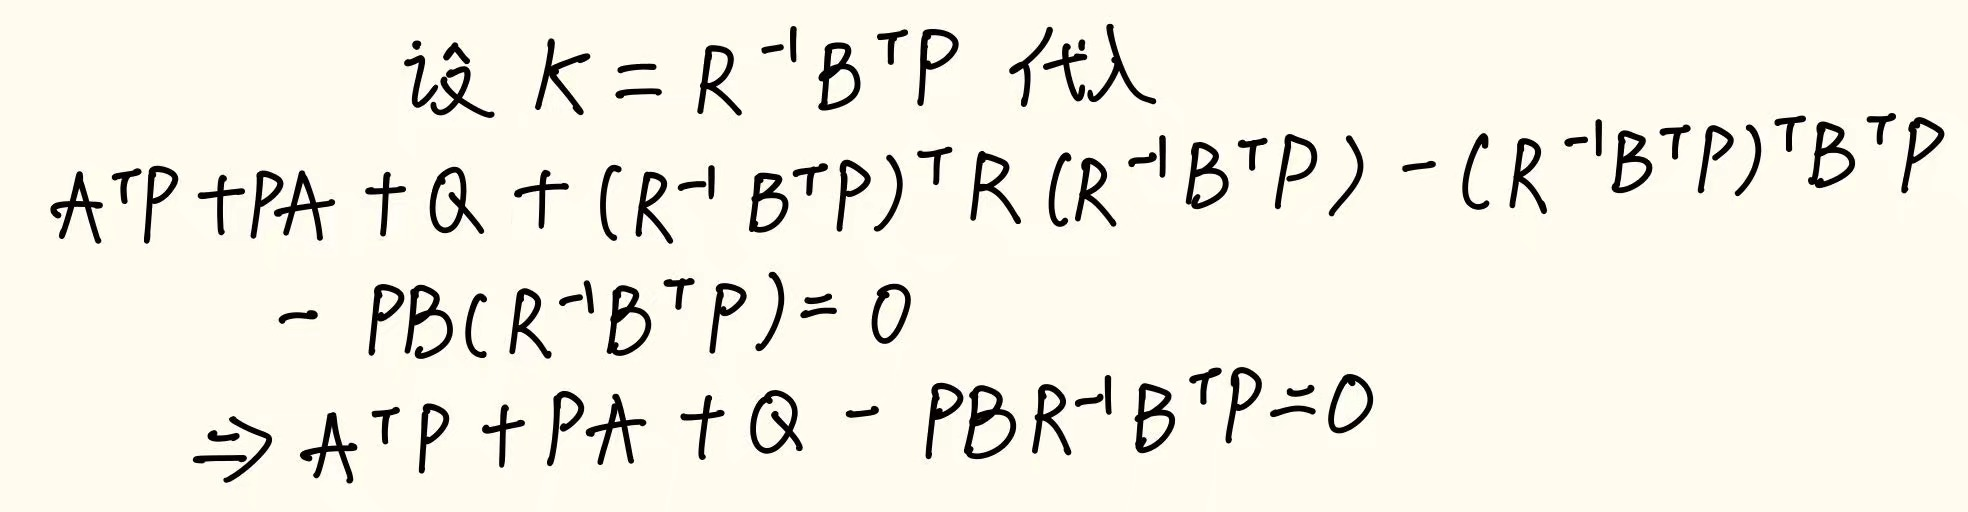 设 K = R⁻¹BᵀP 代入
AᵀP + PA + Q + (R⁻¹BᵀP)ᵀR(R⁻¹BᵀP) - (R⁻¹BᵀP)ᵀBᵀP
- PB(R⁻¹BᵀP) = 0
⇒ AᵀP + PA + Q - PBR⁻¹BᵀP = 0